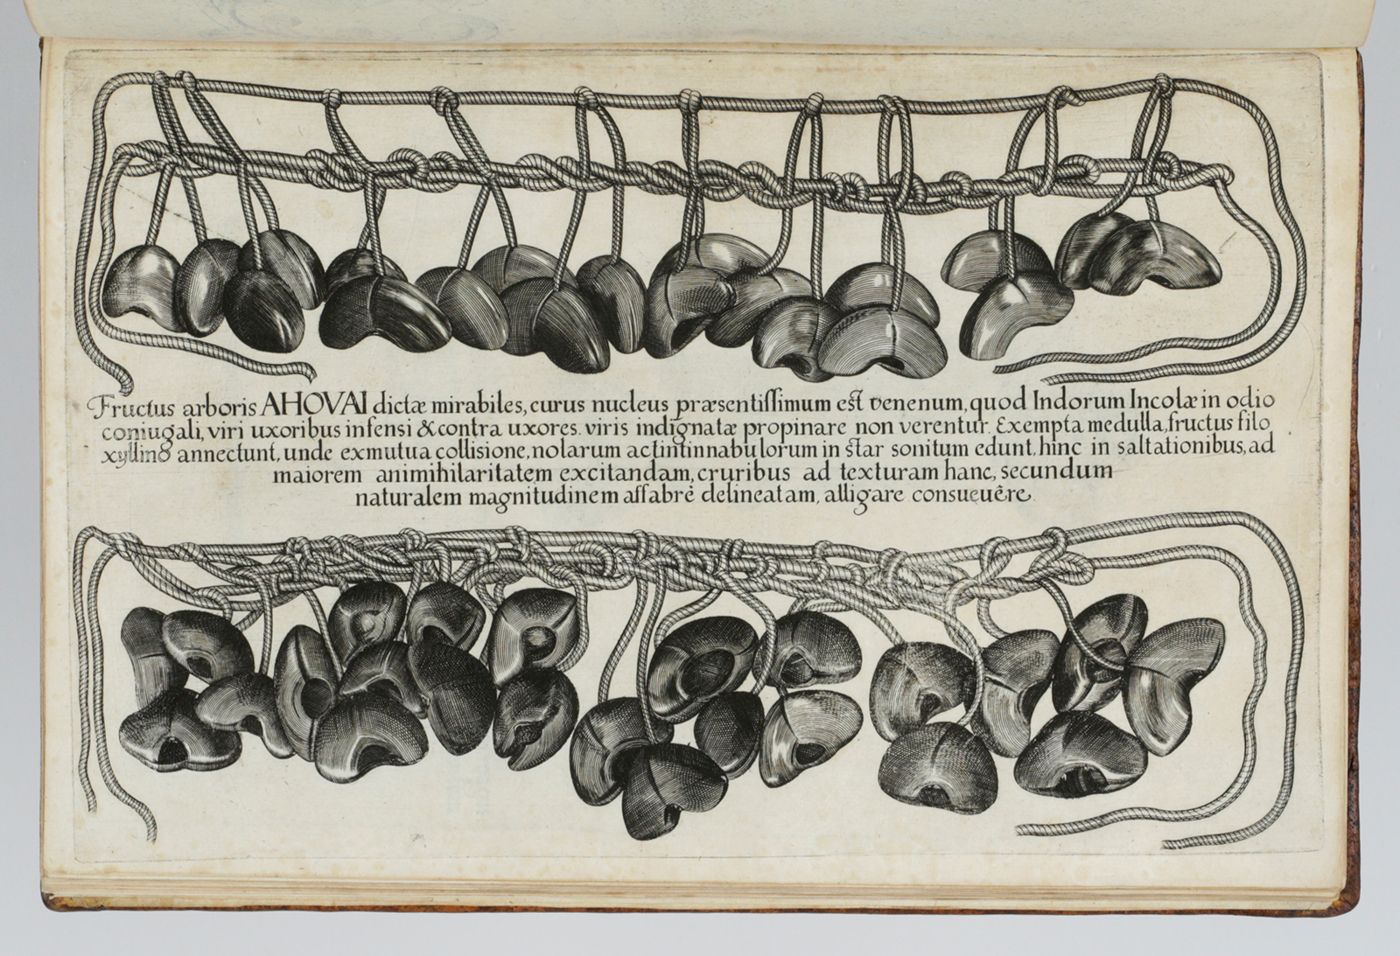 Fructus arboris AHOVAI dictæ mirabiles, curus nucleus præsentissimum est venenum, quod Indorum Incolæ in odio
coniugali, viri uxoribus infensi & contra uxores. viris indignatæ propinare non verentur. Exempta medulla, fructus filo
xylling annectunt, unde exmutua collisione, nolarum actintinnabulorum in star sonitum edunt, hinc in saltationibus, ad
maiorem animihilaritatem excitandam, cruribus ad texturam hanc, secundum
naturalem magnitudinem affabrè delineatam, alligare consueuêre.